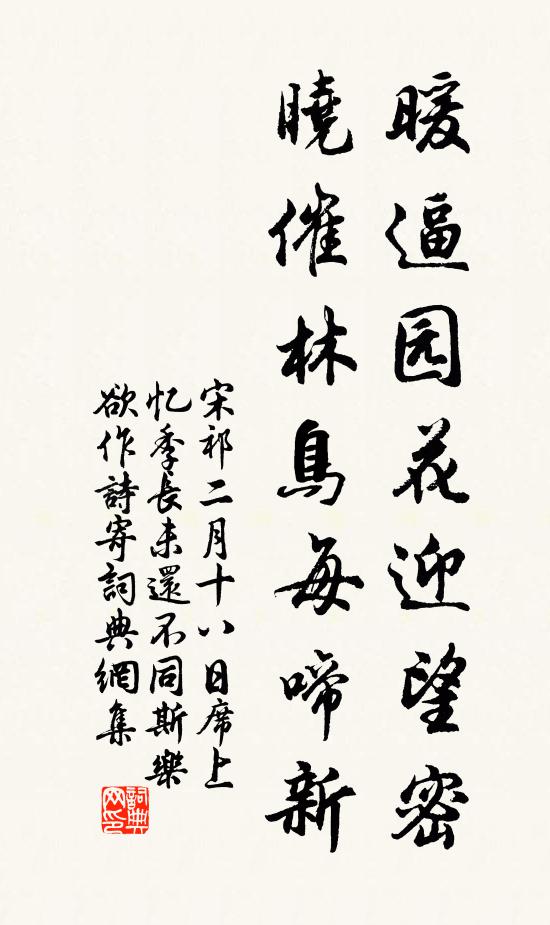 暖逼园花迎望密
曉催林鳥每啼新
宋祁二月十八日席上
忆季長未還不同斯樂
欲作詩寄詞典網集
詞典
网印